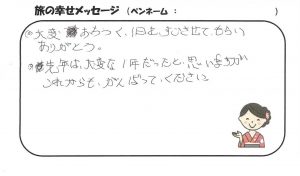 旅の幸せメッセージ（ペンネーム：　　　　）
◎大変 おちつく、1日よ、すごさせて、もらい
ありがとう。
◎先年は、大変な1年だったと、思いますが
これからも、がんばって、ください